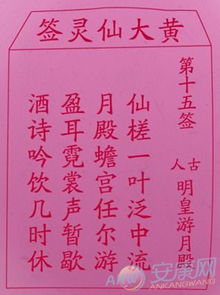 黄大仙灵签
第十五签
古人
明皇游月殿
仙槎一叶泛中流
月殿蟾宫任尔游
盈耳霓裳声暂歇
酒诗吟饮几时休
安康网